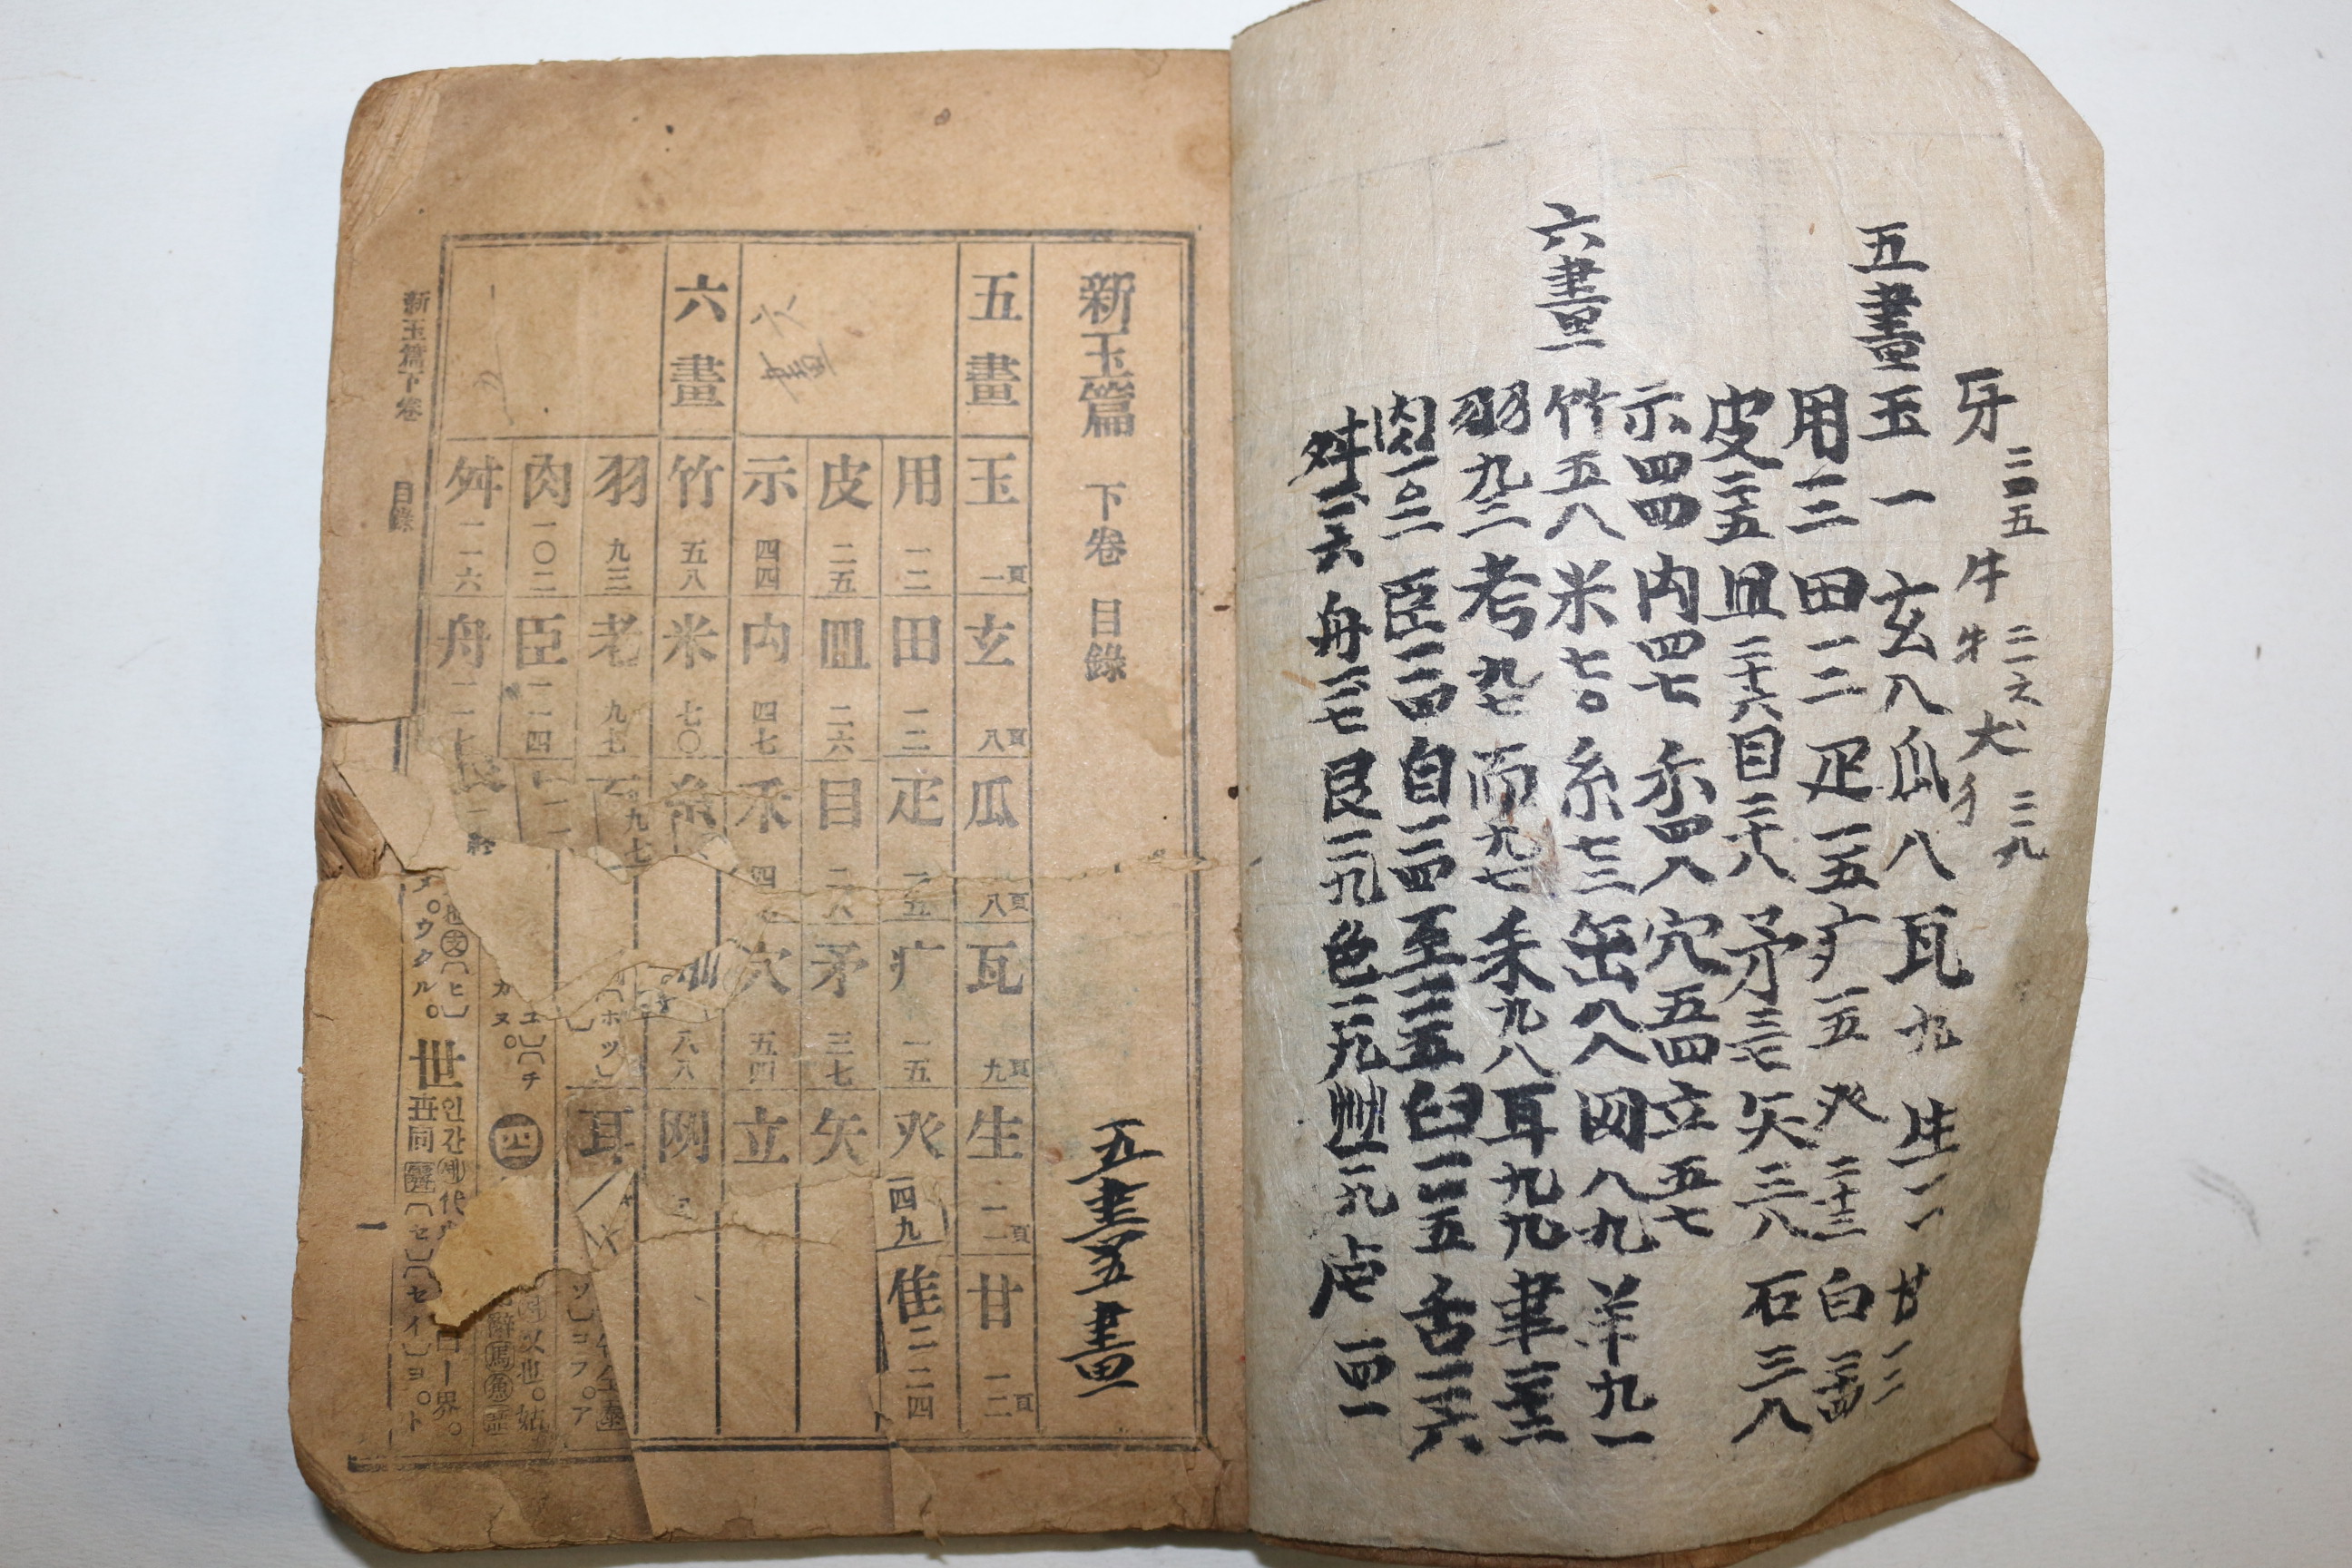 牙 二四五 牛 牜 二六 犬 犭 二二九
五畫 玉 一 玄 八 瓜 八 瓦 九 生 一一 甘 一二
用 一三 田 一三 疋 一五 疒 一五 癶 二十三 白 二十四
皮 二五 皿 二十六 目 二十八 矛 三七 矢 三八 石 三八
示 四四 禸 四七 禾 四八 穴 五四 立 五七
六畫 竹 五八 米 七〇 糸 七三 缶 八八 网 八九 羊 九一
羽 九二 考 九七 而 九七 耒 九八 耳 九九 聿
肉 一〇二 臣 一一四 自 一一四 至 一一五 臼 一一五 舌 一一六
舛 一一六 舟 一一七 艮 一一九 色 一一九 艸 一一九 虍 一四一
新玉篇 下卷 目錄
五畫 五畫
五畫 玉 一頁 玄 八頁 瓜 八頁 瓦 九頁 生 一一頁 甘 一二頁
用 一二 田 一二 疋 一五 疒 一五 癶 一四九 隹 二二四
皮 二五 皿 二六 目 二八 矛 三七 矢
六畫
示 四四 禸 四七 禾 四 穴 五四 立
六畫 竹 五八 米 七〇 糸 八八 网
羽 九三 老 九七 九七 耳
肉 一〇二 臣 一一四
舛 一一六 舟 一一七
新玉篇下卷 目錄
一
世 인간세 代
世同 〔セ〕〔セイ〕ヨ。ト
ウタル。
カヌ。
〔ホツ〕
四
界。